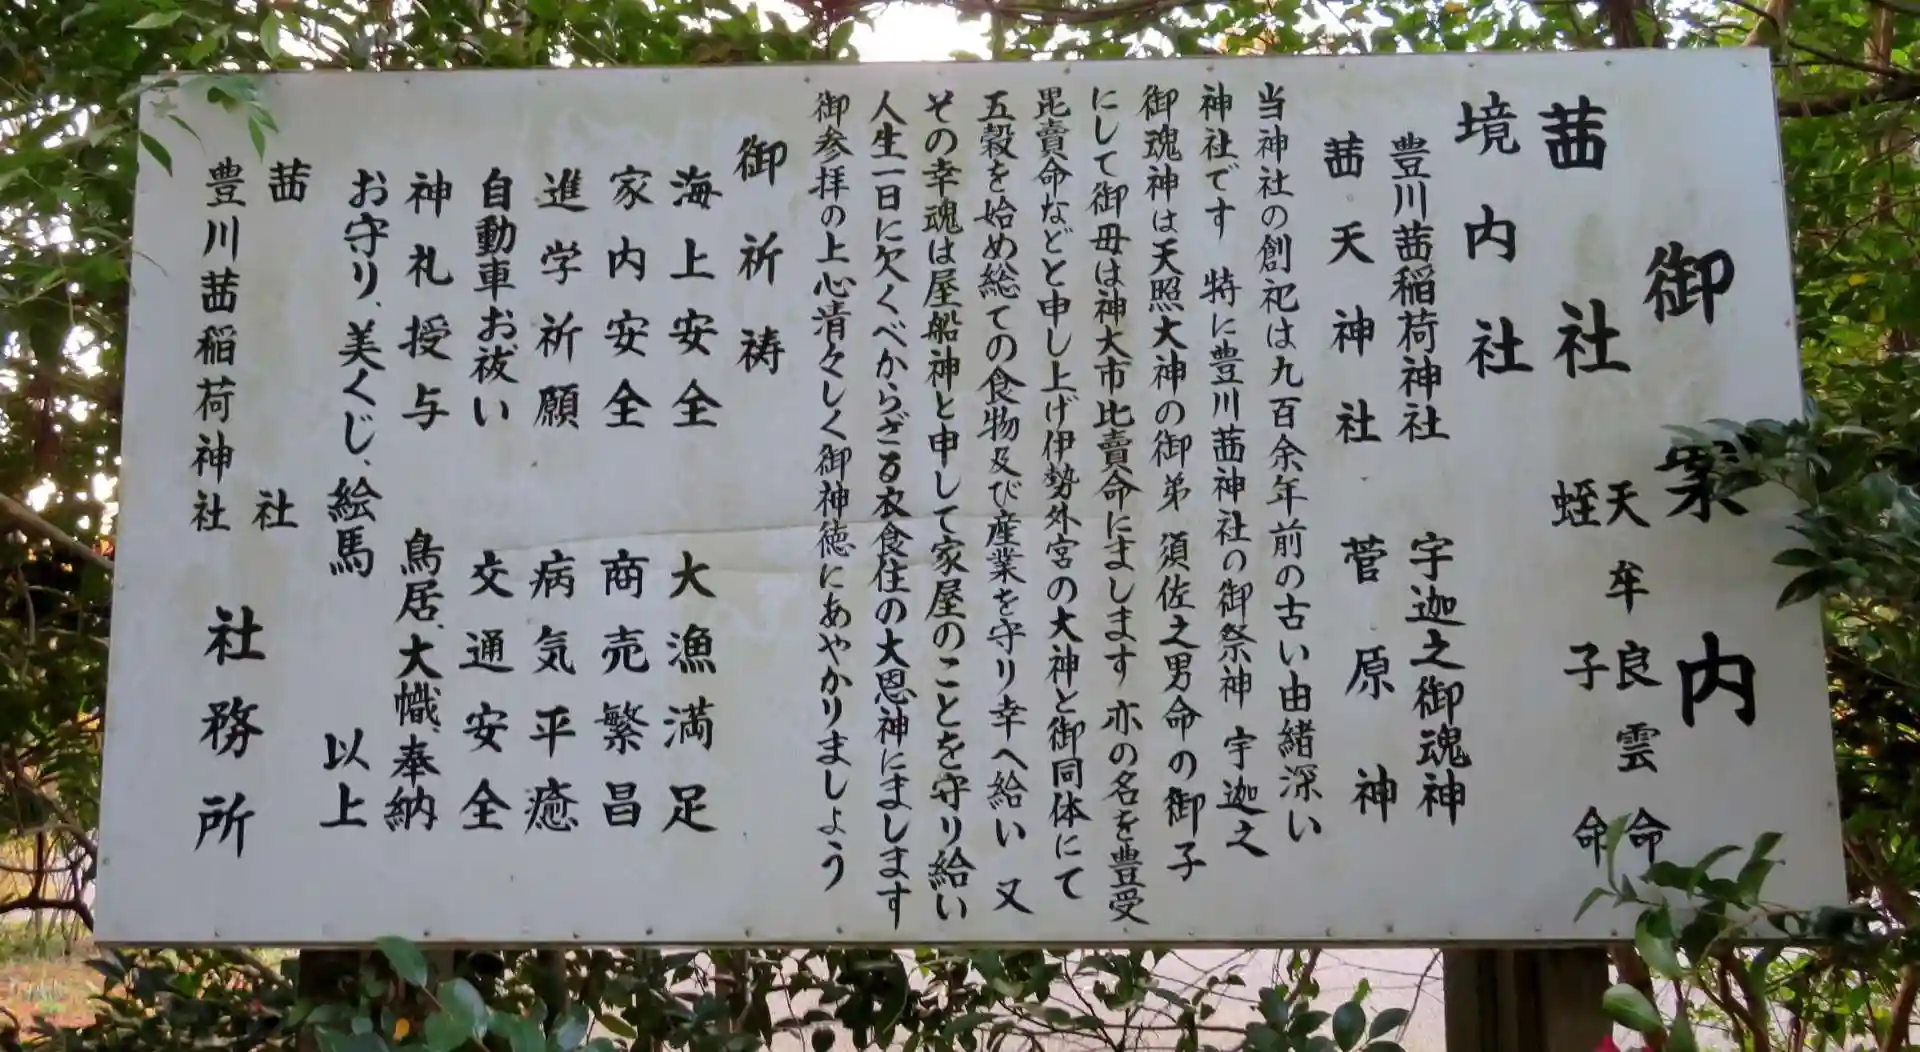 御案内
茜社 天牟良雲命
蛭子命
境内社
豊川茜稲荷神社 宇迦之御魂神
茜天神社 菅原神
当神社の創祀は九百余年前の古い由緒深い
神社です 特に豊川茜神社の御祭神 宇迦之
御魂神は天照大神の御弟 須佐之男命の御子
にして御毋は神大市比賣命にまします 亦の名を豊受
毘賣命などと申し上げ伊勢外宮の大神と御同体にて
五穀を始め総ての食物及び産業を守り幸へ給い 又
その幸魂は屋船神と申して家屋のことを守り給い
人生一日に欠くべからざる衣食住の大恩神にまします
御参拝の上心清々しく御神徳にあやかりましょう
御祈祷
海上安全 大漁満足
家内安全 商売繁昌
進学祈願 病気平癒
自動車お祓い 交通安全
神札授与 鳥居、大幟、奉納
お守り、美くじ、絵馬 以上
茜社
豊川茜稲荷神社 社務所